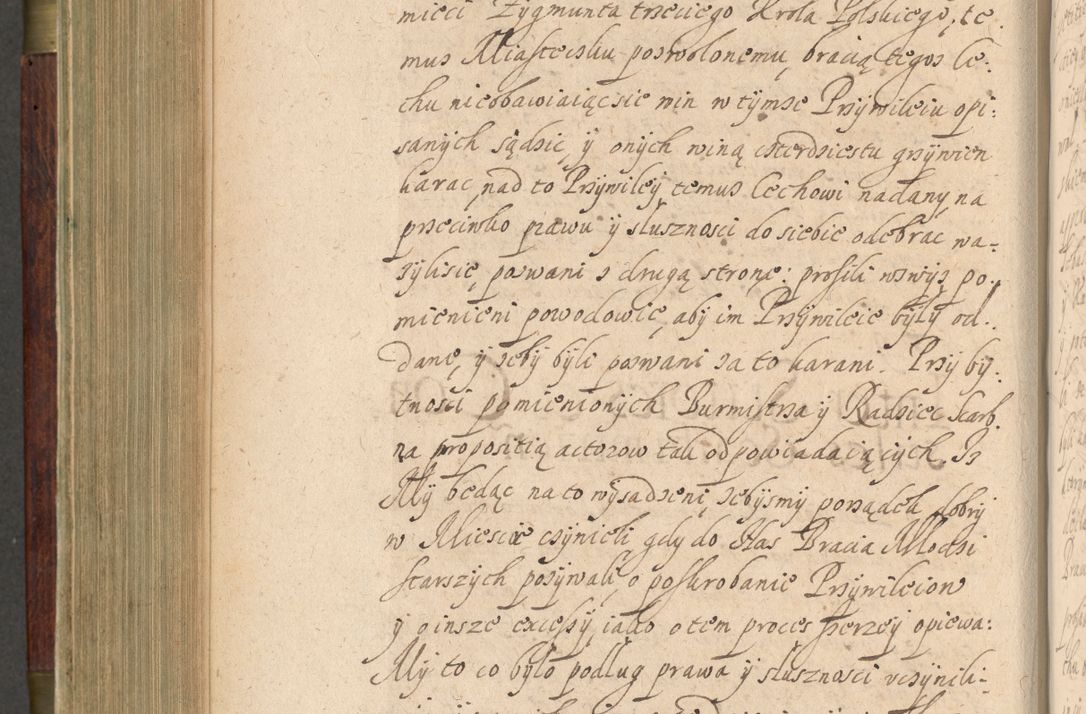 mięci Zygmunta trzeciego Krola Polskiego, te
mus Miasteczku poswolonemu, bracią tegoz Ce:
chu nieobawiaiąc sie win w tÿmze Przÿwileiu opi:
sanÿch sądzic, ÿ onÿch winą czterdziestu grzÿwien
karac, nad to Przÿwileÿ temuz Cechowi nadanÿ na
przeciwko prawu ÿ słusznosci do siebie odebrac wa=
zÿli się, pozwani z drugą stronę: prosili wzwÿz po.
mienieni powodowie, aby im Przÿwileie bÿłÿ od.
dane, ÿ zebÿ bÿli pozwani za to karani. Przÿ bÿ.
tnosci pomienionÿch Burmistrza ÿ Radziec skarb.
na propositią actorow tak odpowiadaiącÿch. Iz
Mÿ będąc na to wÿsadzeni, zebÿsmÿ porządek dobrÿ
w Miescie czÿnieli gdÿ do Nas Bracia Młodzi
starszÿch pozÿwali, o poskrobanie Przÿwileiow
ÿ o insze excessÿ, iako o tem proces szerzeÿ opiewa:
Mÿ to co bÿło podług prawa ÿ słusznosci vczÿnili=